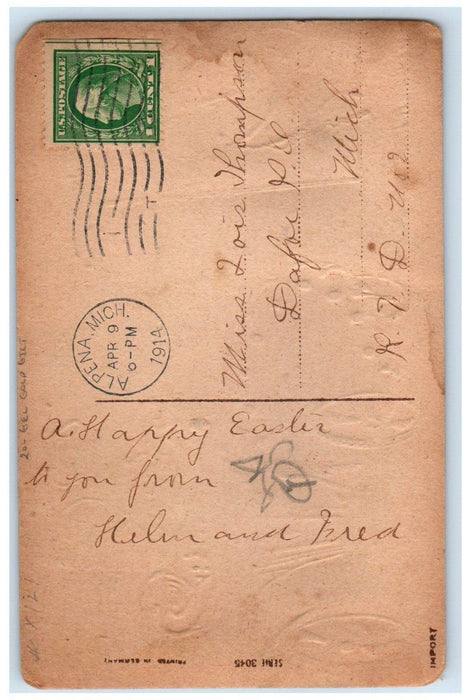 U.S.POSTAGE
1 CENT 1
ALPENA, MICH.
APR 9
6-PM
1914
Miss Lois Thompson
Lafoe P O
Mich
R. F. D. No 2
A Happy Easter
to you from
Helen and Fred
PRINTED IN GERMANY
SERIE 3045
IMPORT